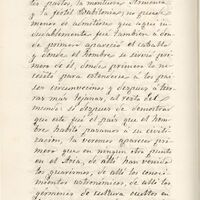 des pastos, la montura Armenia
y la fertil Babilonia, no puede
menos de admitirse que aqui in-
dudablemente fué tambien a don-
de primero apareció el caballo
y donde el hombre se sirvió pri-
mero de él, donde primero lo ne-
cesitó para estenderse á los pai-
ses circunvecinos y despues á tier-
ras mas lejanas, al resto del
mundo; y despues de demostrar
que este fué el pais que el hom-
bre habitó, pasamos á su civili-
zacion, la vemos aparecer pri-
mero que en ningun otro punto
en el Asia, de allí han venido
los guarismos, de allí los conoci-
mientos astronómicos, de allí los
gérmenes de cultura